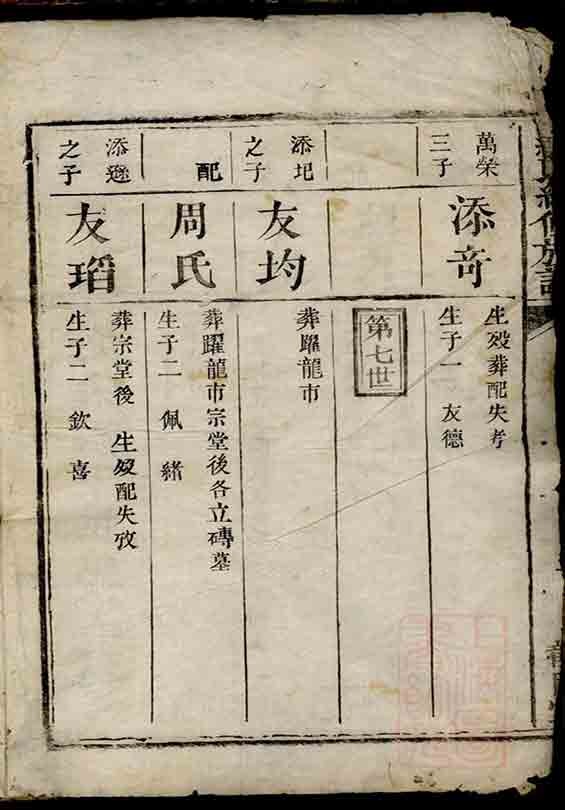 萬榮
三子
添奇
生殁葬配失考
生子一 友德
第七世
添圯
之子
友均
葬躍龍市
配
周氏
葬躍龍市宗堂後各立磚墓
生子二 佩 緒
添遜
之子
友瑫
葬宗堂後 生殁配失攷
生子二 欽 喜